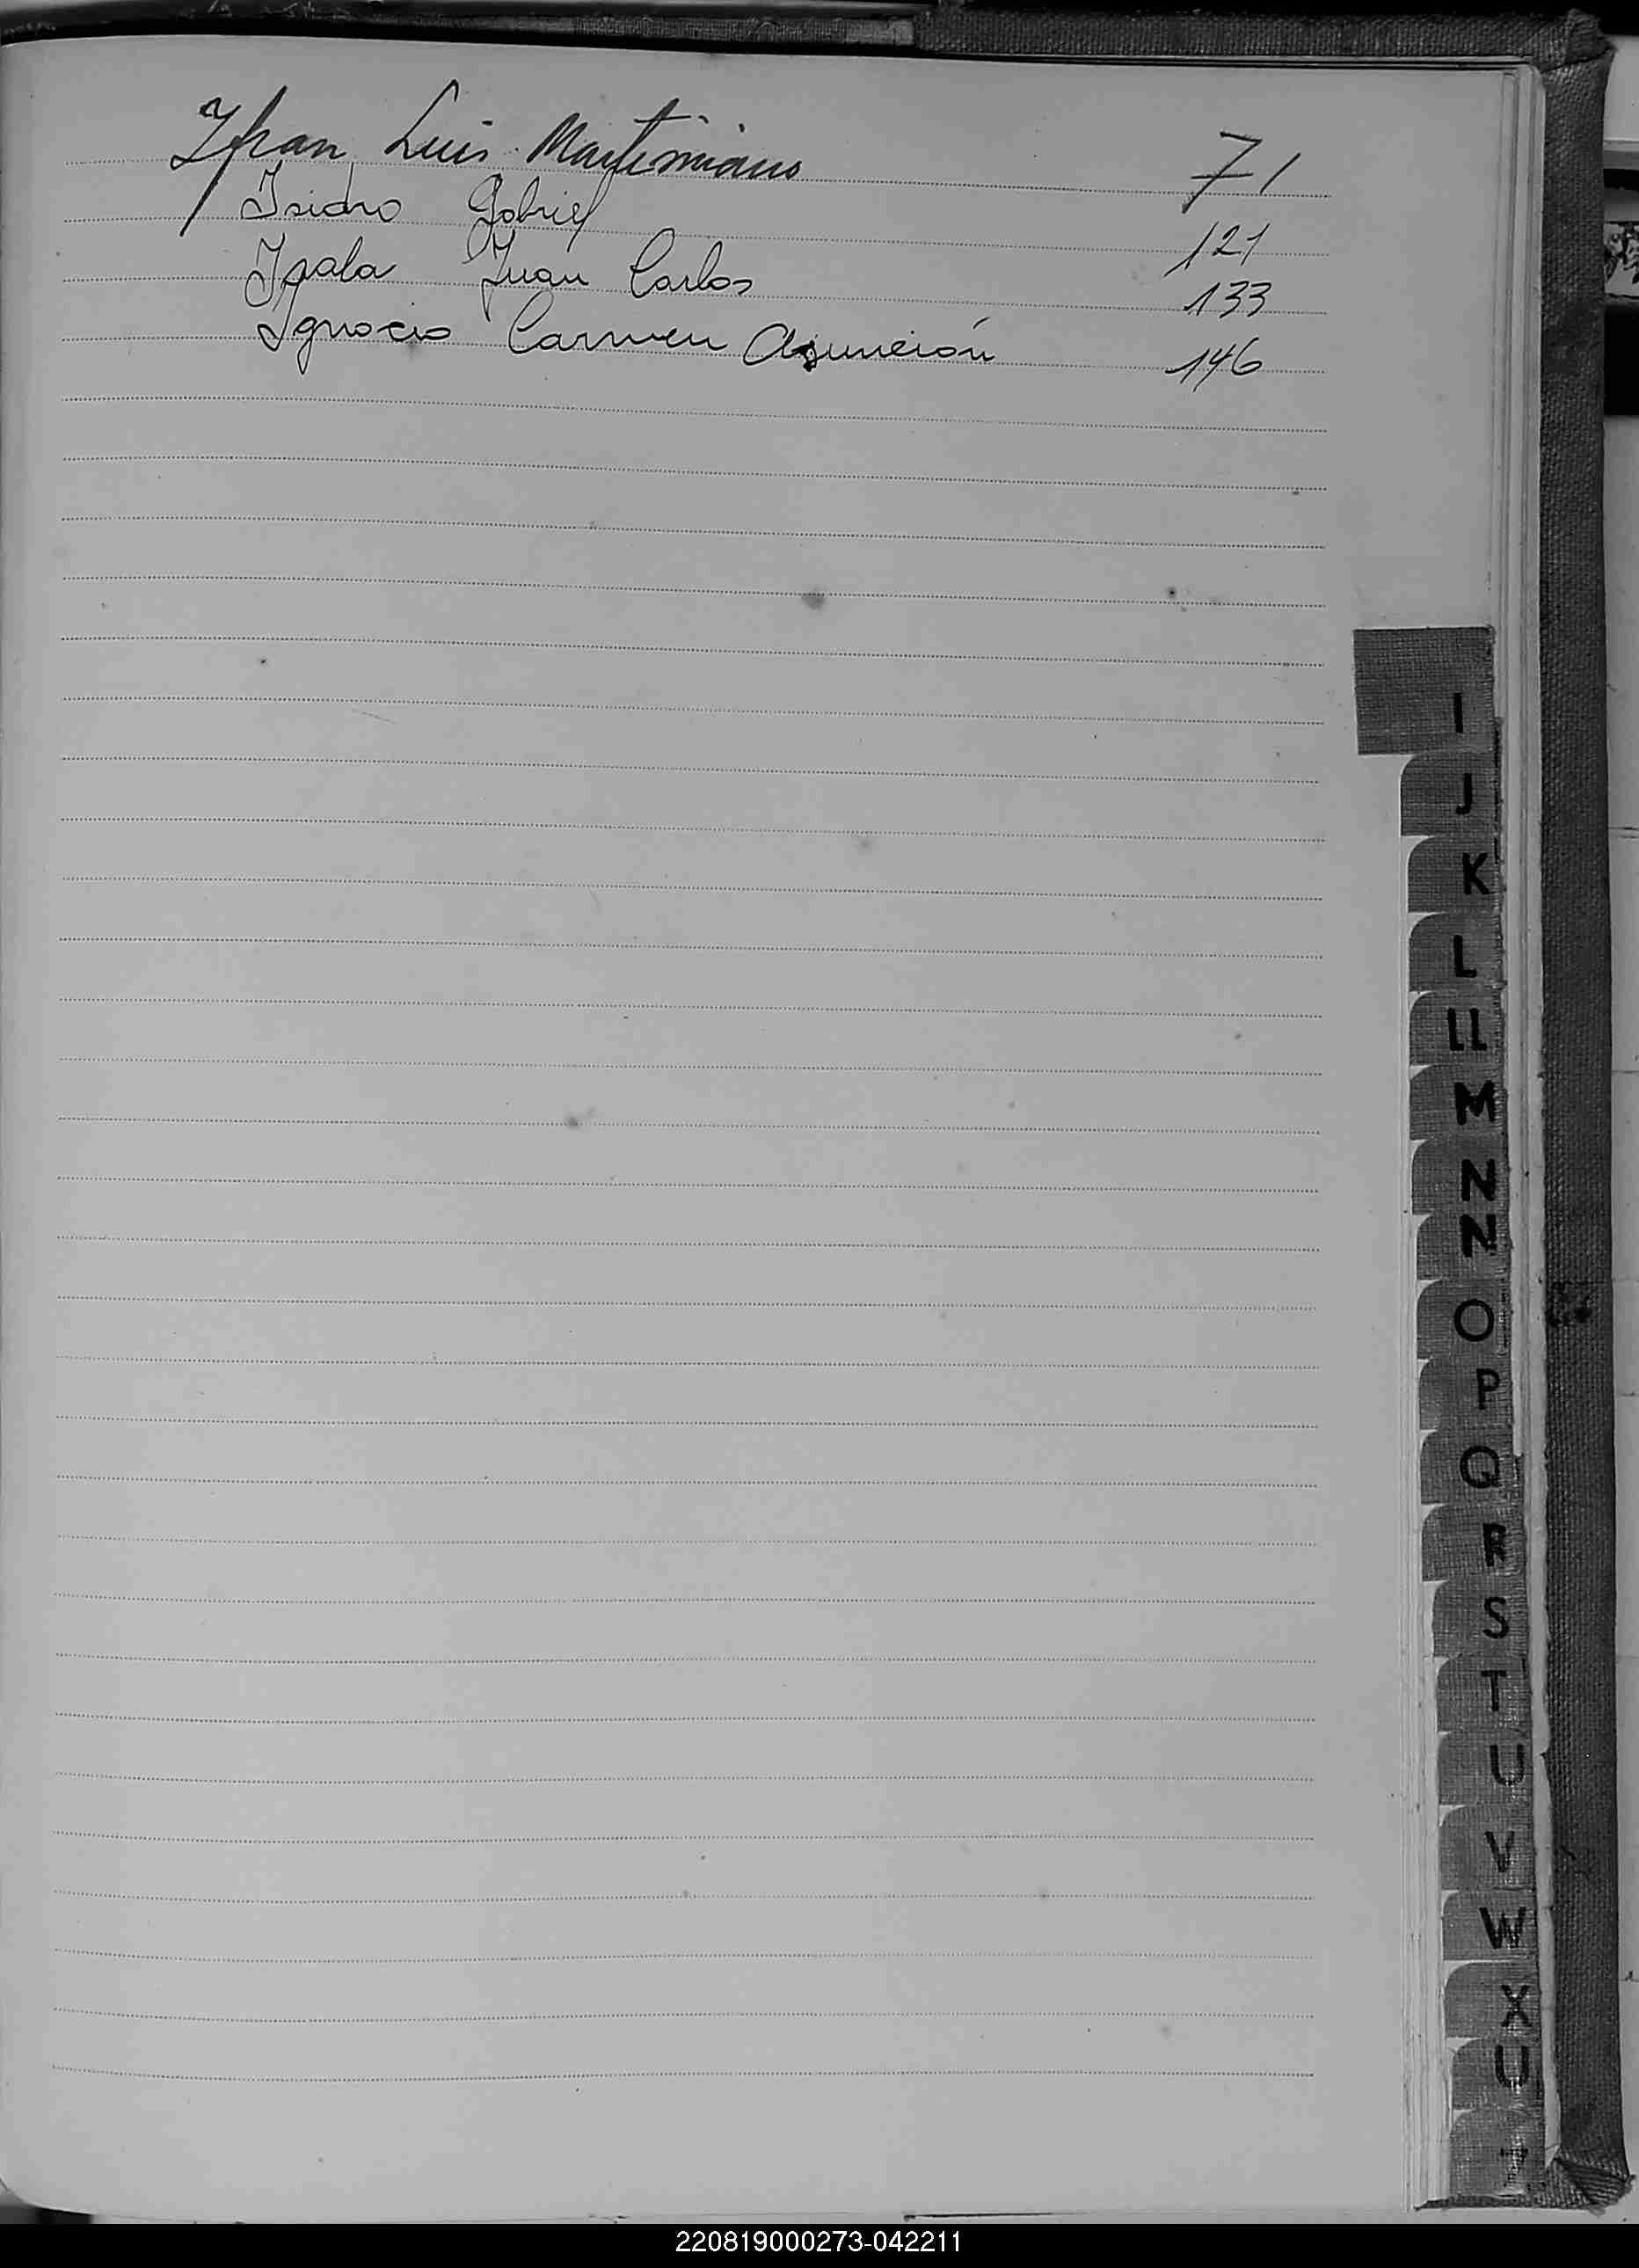 Ifran Luis Martiniano 71
Isidro Gabriel 121
Ipala Juan Carlos 133
Ignacio Carmen Asunción 146
I
J
K
L
LL
M
N
N
O
P
Q
R
S
T
U
V
W
X
U
220819000273-042211